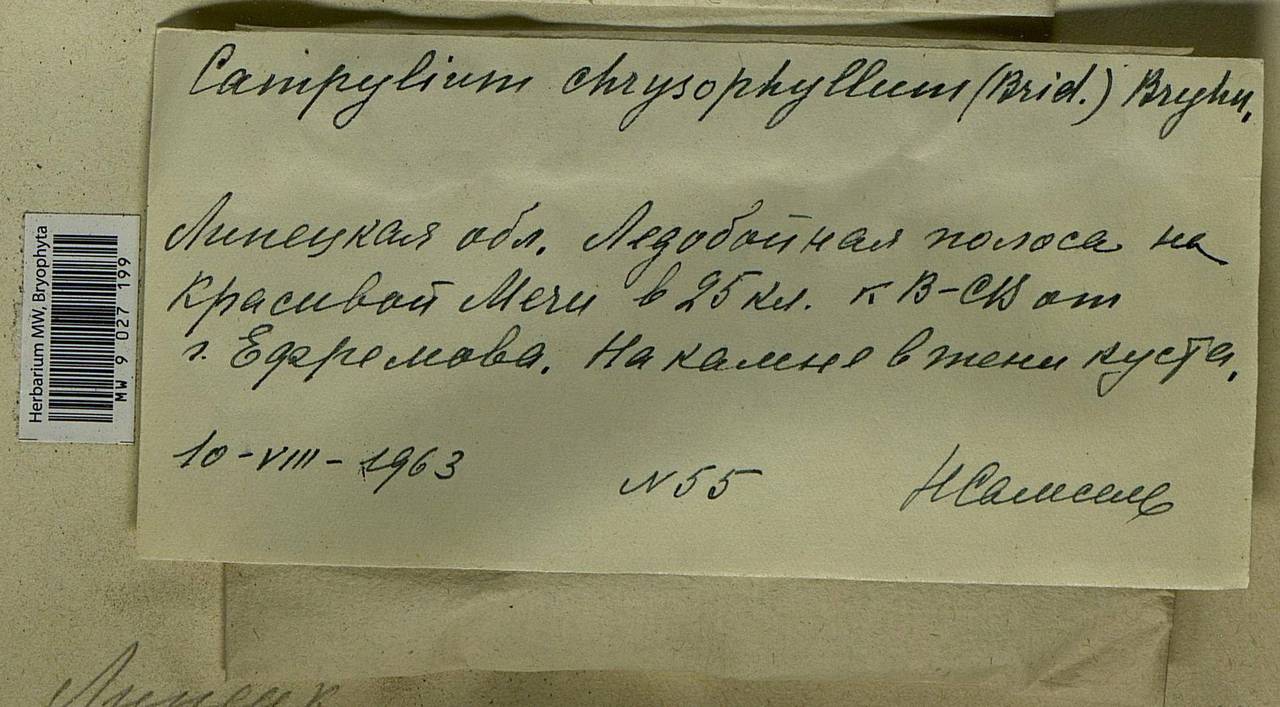 Campylium chrysophyllum (Brid.) Bryhn.
Липецкая обл. Ледобойная полоса на
Красивой Мечи в 25 км. к В-СВ от
г. Ефремова. На камне в тени куста.
10-VIII-1963 N 55
Herbarium MW, Bryophyta
MW 9 027 199
Липецк